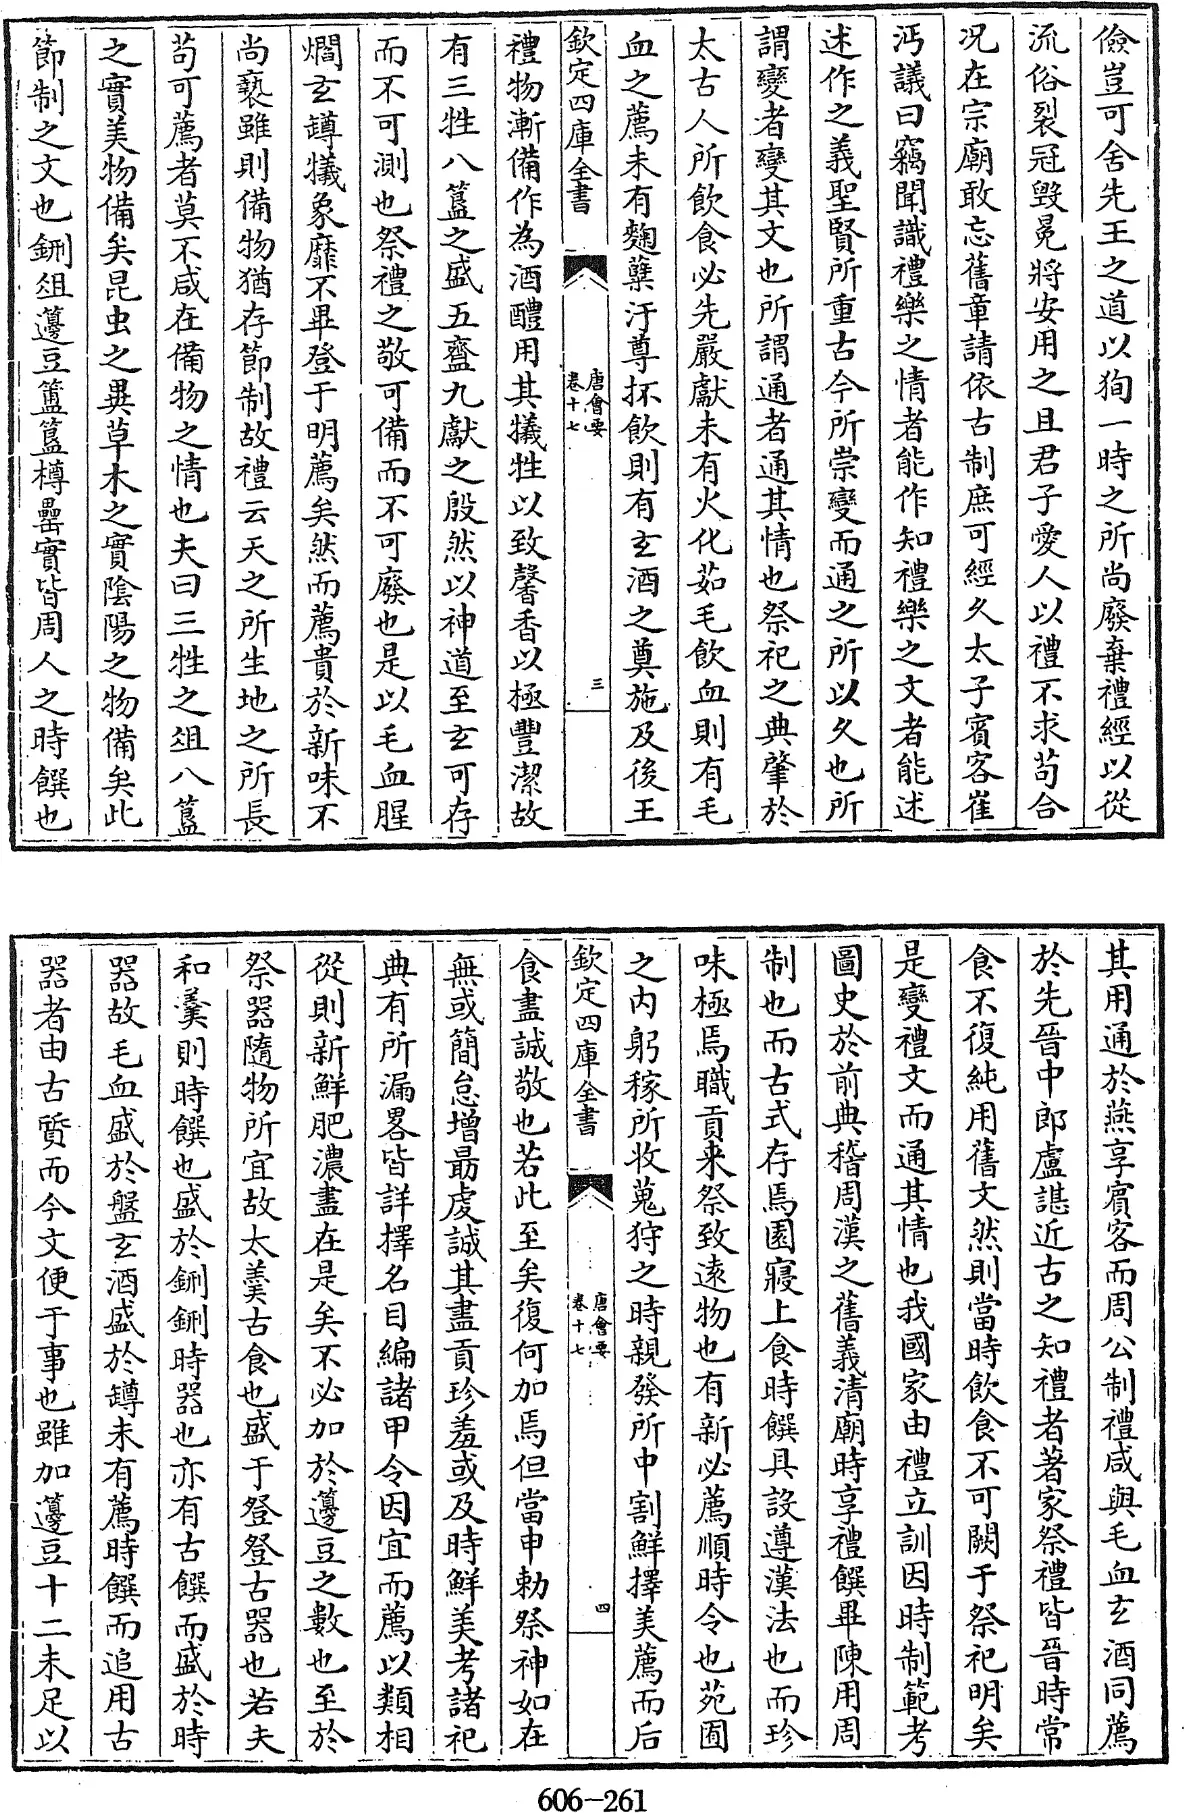 儉豈可舍先王之道以狥一時之所尚廢棄禮經以從
流俗裂冠毁冕將安用之且君子愛人以禮不求茍合
况在宗廟敢忘舊章請依古制庶可經久太子賓客崔
沔議曰竊聞識禮樂之情者能作知禮樂之文者能述
述作之義聖賢所重古今所崇變而通之所以久也所
謂變者變其文也所謂通者通其情也祭祀之典肇於
太古人所飲食必先嚴獻未有火化茹毛飲血則有毛
血之薦未有麴糵汙尊抔飲則有玄酒之奠施及後王
欽定四庫全書
唐會要
卷十七
三
禮物漸備作為酒醴用其犧牲以致馨香以極豐潔故
有三牲八簋之盛五齊九獻之殷然以神道至玄可存
而不可測也祭禮之敬可備而不可廢也是以毛血腥
爓玄罇犧象靡不畢登于明薦矣然而薦貴於新味不
尚褻雖則備物猶存節制故禮云天之所生地之所長
茍可薦者莫不咸在備物之情也夫曰三牲之俎八簋
之實美物備矣昆虫之異草木之實陰陽之物備矣此
節制之文也鉶俎籩豆簠簋樽罍實皆周人之時饌也
其用通於燕享賓客而周公制禮咸與毛血玄酒同薦
於先晉中郎盧諶近古之知禮者著家祭禮皆晉時常
食不復純用舊文然則當時飲食不可闕于祭祀明矣
是變禮文而通其情也我國家由禮立訓因時制範考
圖史於前典稽周漢之舊義清廟時享禮饌畢陳用周
制也而古式存焉園寢上食時饌具設遵漢法也而珍
味極焉職貢来祭致遠物也有新必薦順時令也苑囿
之内躬稼所收蒐狩之時親發所中割鮮擇美薦而后
欽定四庫全書
唐會要
卷十七
四
食盡誠敬也若此至矣復何加焉但當申勅祭神如在
無或簡怠增朂虔誠其盡貢珍羞或及時鮮美考諸祀
典有所漏畧皆詳擇名目編諸甲令因宜而薦以類相
從則新鮮肥濃盡在是矣不必加於籩豆之數也至於
祭器隨物所宜故太羹古食也盛于登登古器也若夫
和羹則時饌也盛於鉶鉶時器也亦有古饌而盛於時
器故毛血盛於盤玄酒盛於罇未有薦時饌而追用古
器者由古質而今文便于事也雖加籩豆十二未足以
606-261